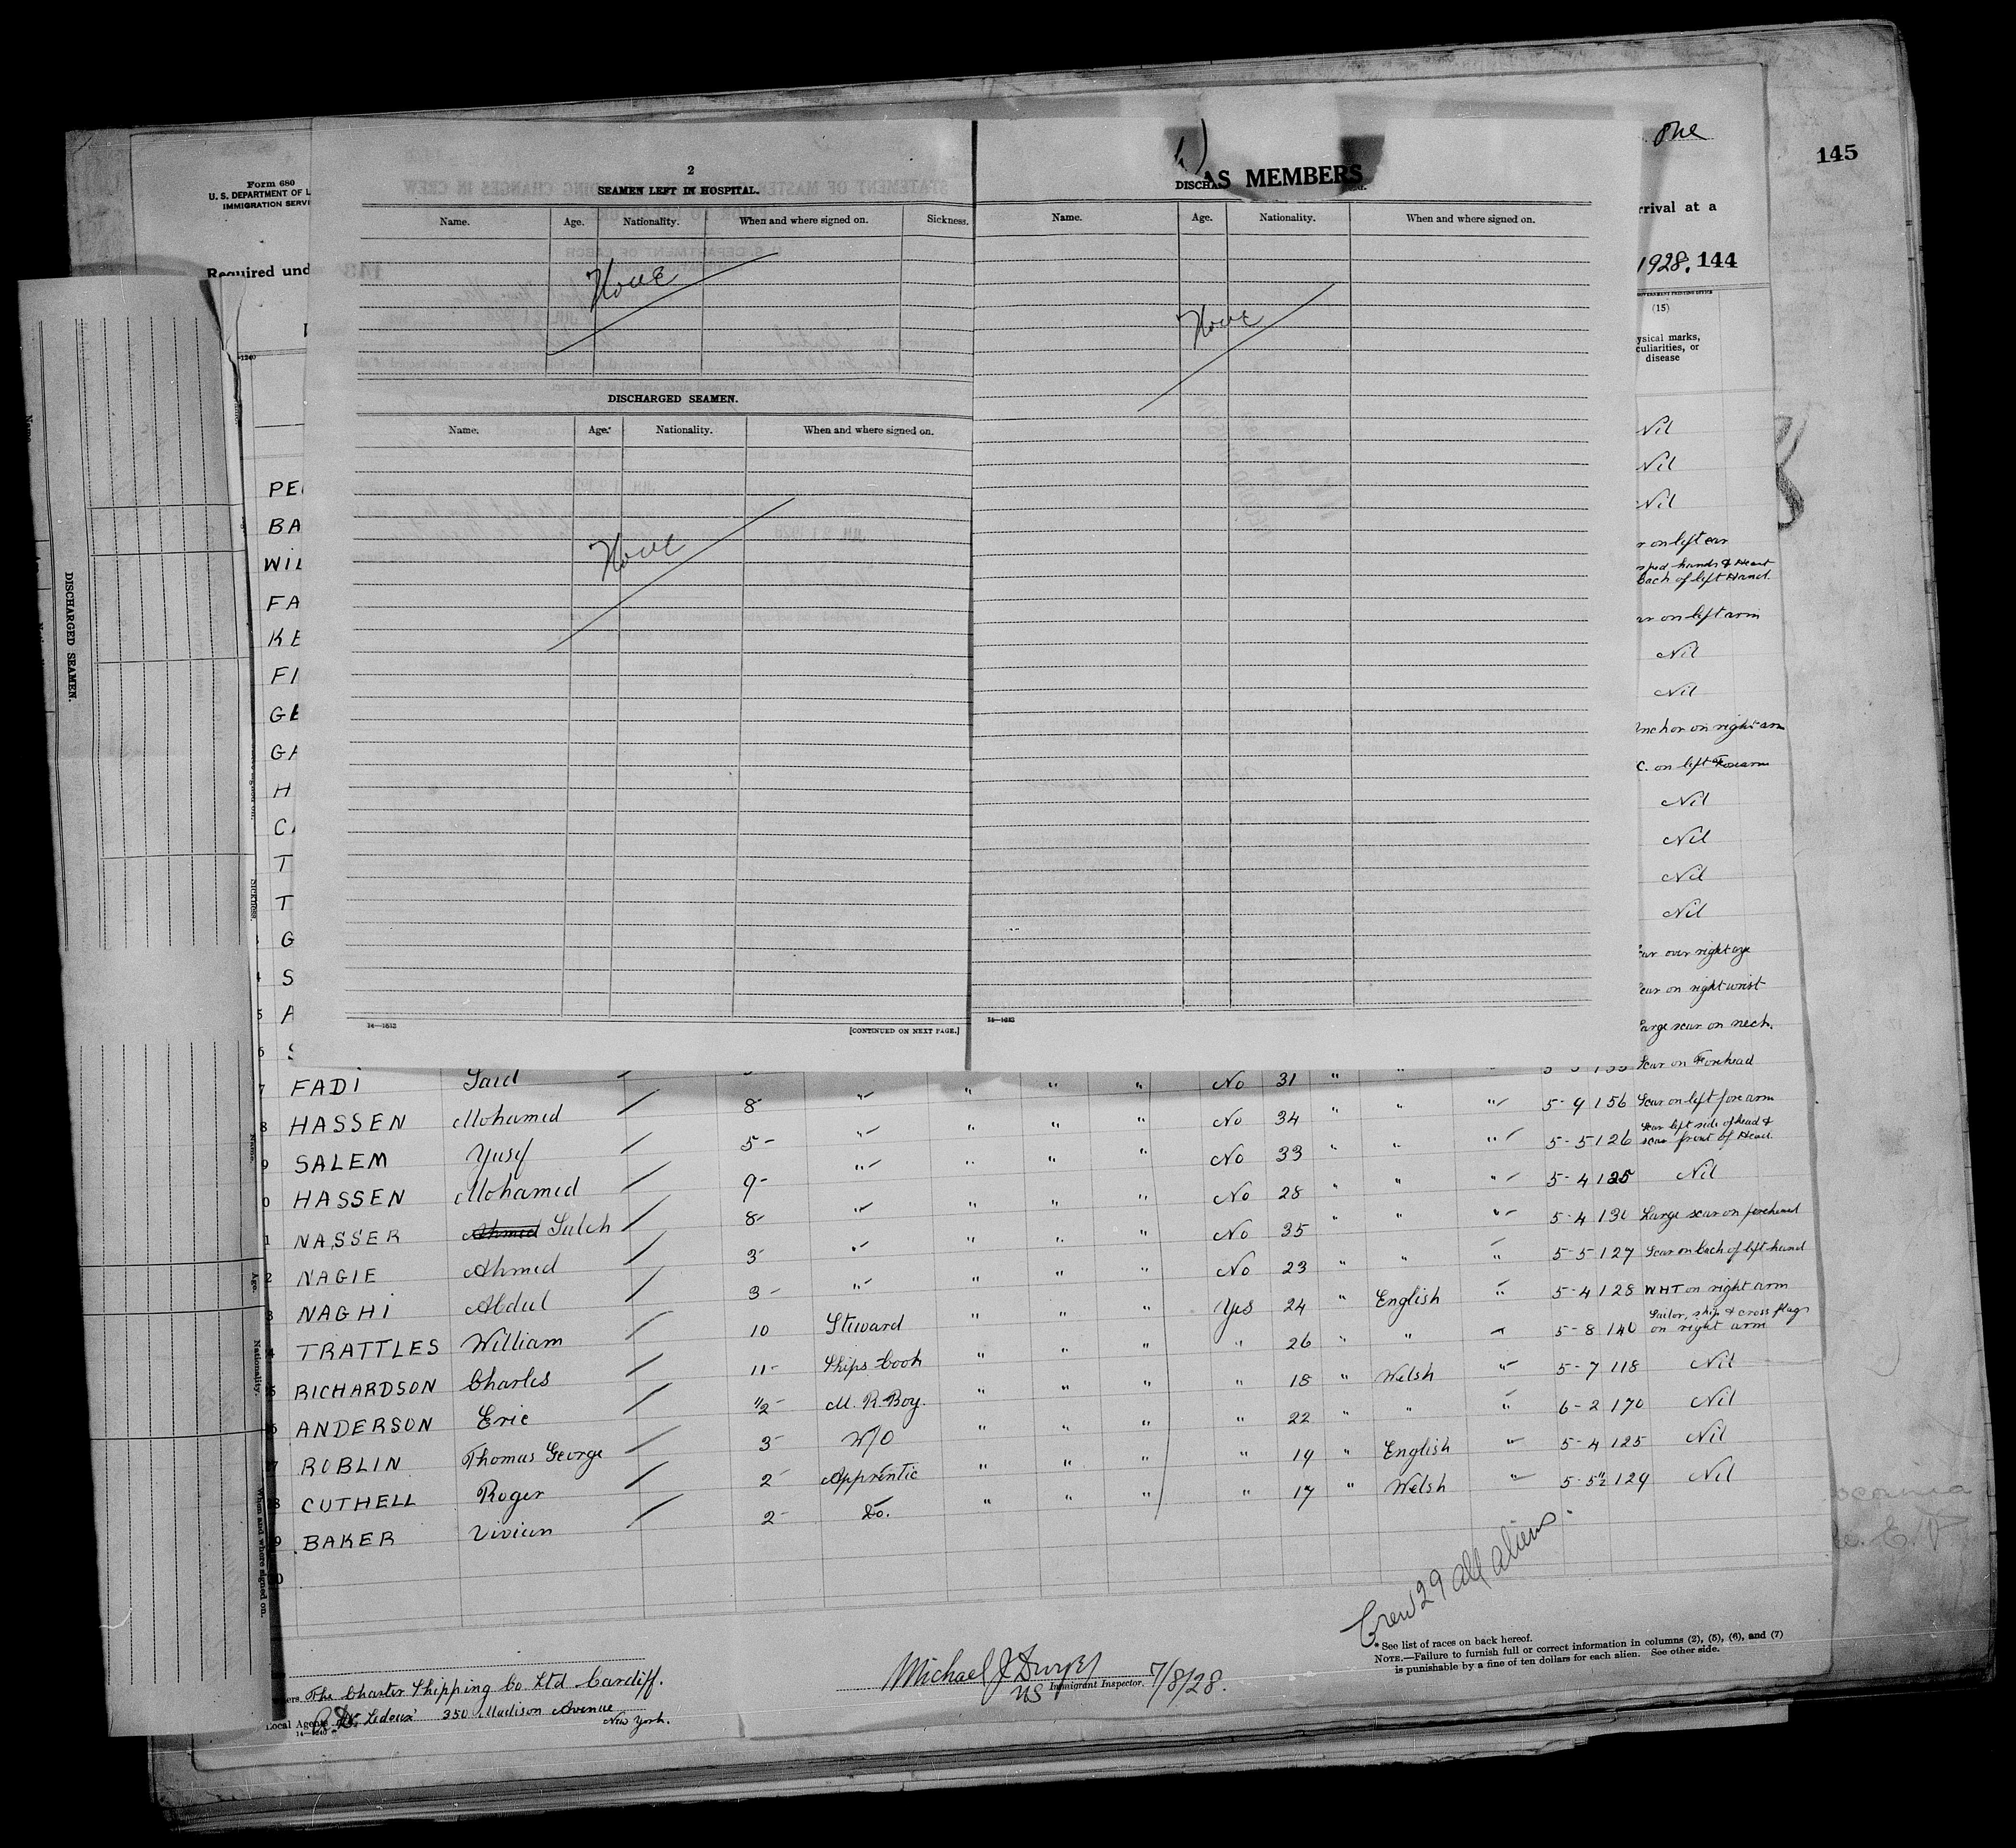 145
One
Form 680
U. S. DEPARTMENT OF L
IMMIGRATION SERVI
Required und
rrival at a
1928. 144
GOVERNMENT PRINTING OFFICE
(15)
ysical marks,
culiarities, or
disease
2
SEAMEN LEFT IN HOSPITAL.
Name. Age. Nationality. When and where signed on. Sickness.
None
DISCHARGED SEAMEN.
Name. Age. Nationality. When and where signed on.
None
14—1642
[CONTINUED ON NEXT PAGE.]
AS MEMBERS
DISCHA
Name. Age. Nationality. When and where signed on.
None
DISCHARGED SEAMEN.
PE
BA
WIL
FA
KE
FI
GE
GA
H
CA
T
T
G
S
A
S
Nil
Nil
Nil
on left ear
sped hands & Heart
back of left Hand.
on left arm
Nil
Nil
Anchor on right arm
C. on left Forearm
Nil
Nil
Nil
Nil
car over right eye
car on right wrist
Large scar on neck.
Scar on Forehead
7 FADI Said " " " No 31 " "
8 HASSEN Mohamed 8 " " " " No 34 " " " 5-9 156 Scar on left fore arm
9 SALEM Yusf 5 " " " " No 33 " " " 5-5 126 Scar left side of head & scar front of Head.
0 HASSEN Mohamed 9 " " " " No 28 " " " 5-4 125 Nil
1 NASSER Ahmed Saleh 8 " " " " No 35 " " " 5-4 130 Large scar on forehead
2 NAGIE Ahmed 3 " " " " No 23 " " " 5-5 127 Scar on back of left hand
3 NAGHI Abdul 3 " " " " Yes 24 " English " 5-4 128 WHT on right arm
4 TRATTLES William 10 Steward " " " " 26 " " " 5-8 140 Sailor, ship & cross flags on right arm
5 RICHARDSON Charles 11 Ships Cook " " " " 18 " Welsh " 5-7 118 Nil
6 ANDERSON Eric 1/2 M. R. Boy. " " " " 22 " " " 6-2 170 Nil
7 ROBLIN Thomas George 3 W/O " " " " 19 " English " 5-4 125 Nil
8 CUTHELL Roger 2 Apprentic " " " " 17 " Welsh " 5-5½ 129 Nil
9 BAKER Vivian 2 Do.
30
Crew 29 all aliens.
*See list of races on back hereof.
NOTE.—Failure to furnish full or correct information in columns (2), (5), (6), and (7)
is punishable by a fine of ten dollars for each alien. See other side.
The Charter Shipping Co Ltd Cardiff.
Local Agents Ledoux 350 Madison Avenue
New York.
14—1240
Michael J Dwyer
US Immigrant Inspector. 7/8/28.